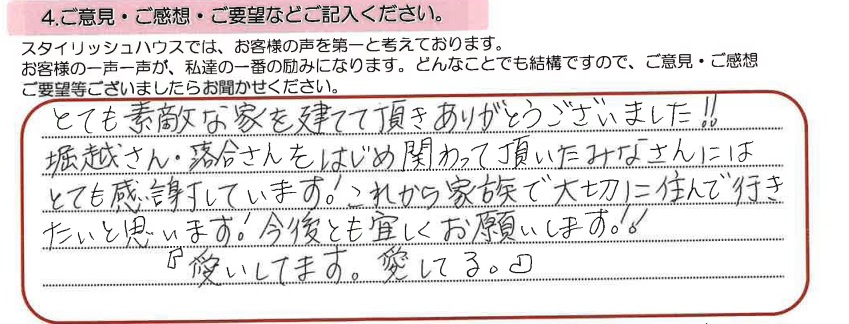 4.ご意見・ご感想・ご要望などご記入ください。
スタイリッシュハウスでは、お客様の声を第一と考えております。
お客様の一声一声が、私達の一番の励みになります。どんなことでも結構ですので、ご意見・ご感想
ご要望等ございましたらお聞かせください。
とても素敵な家を建てて頂きありがとうございました!!
堀越さん・落合さんをはじめ関わって頂いたみなさんには
とても感謝しています!これから家族で大切に住んで行き
たいと思います!今後とも宜しくお願いします!!
『愛いしてます。愛してる。』